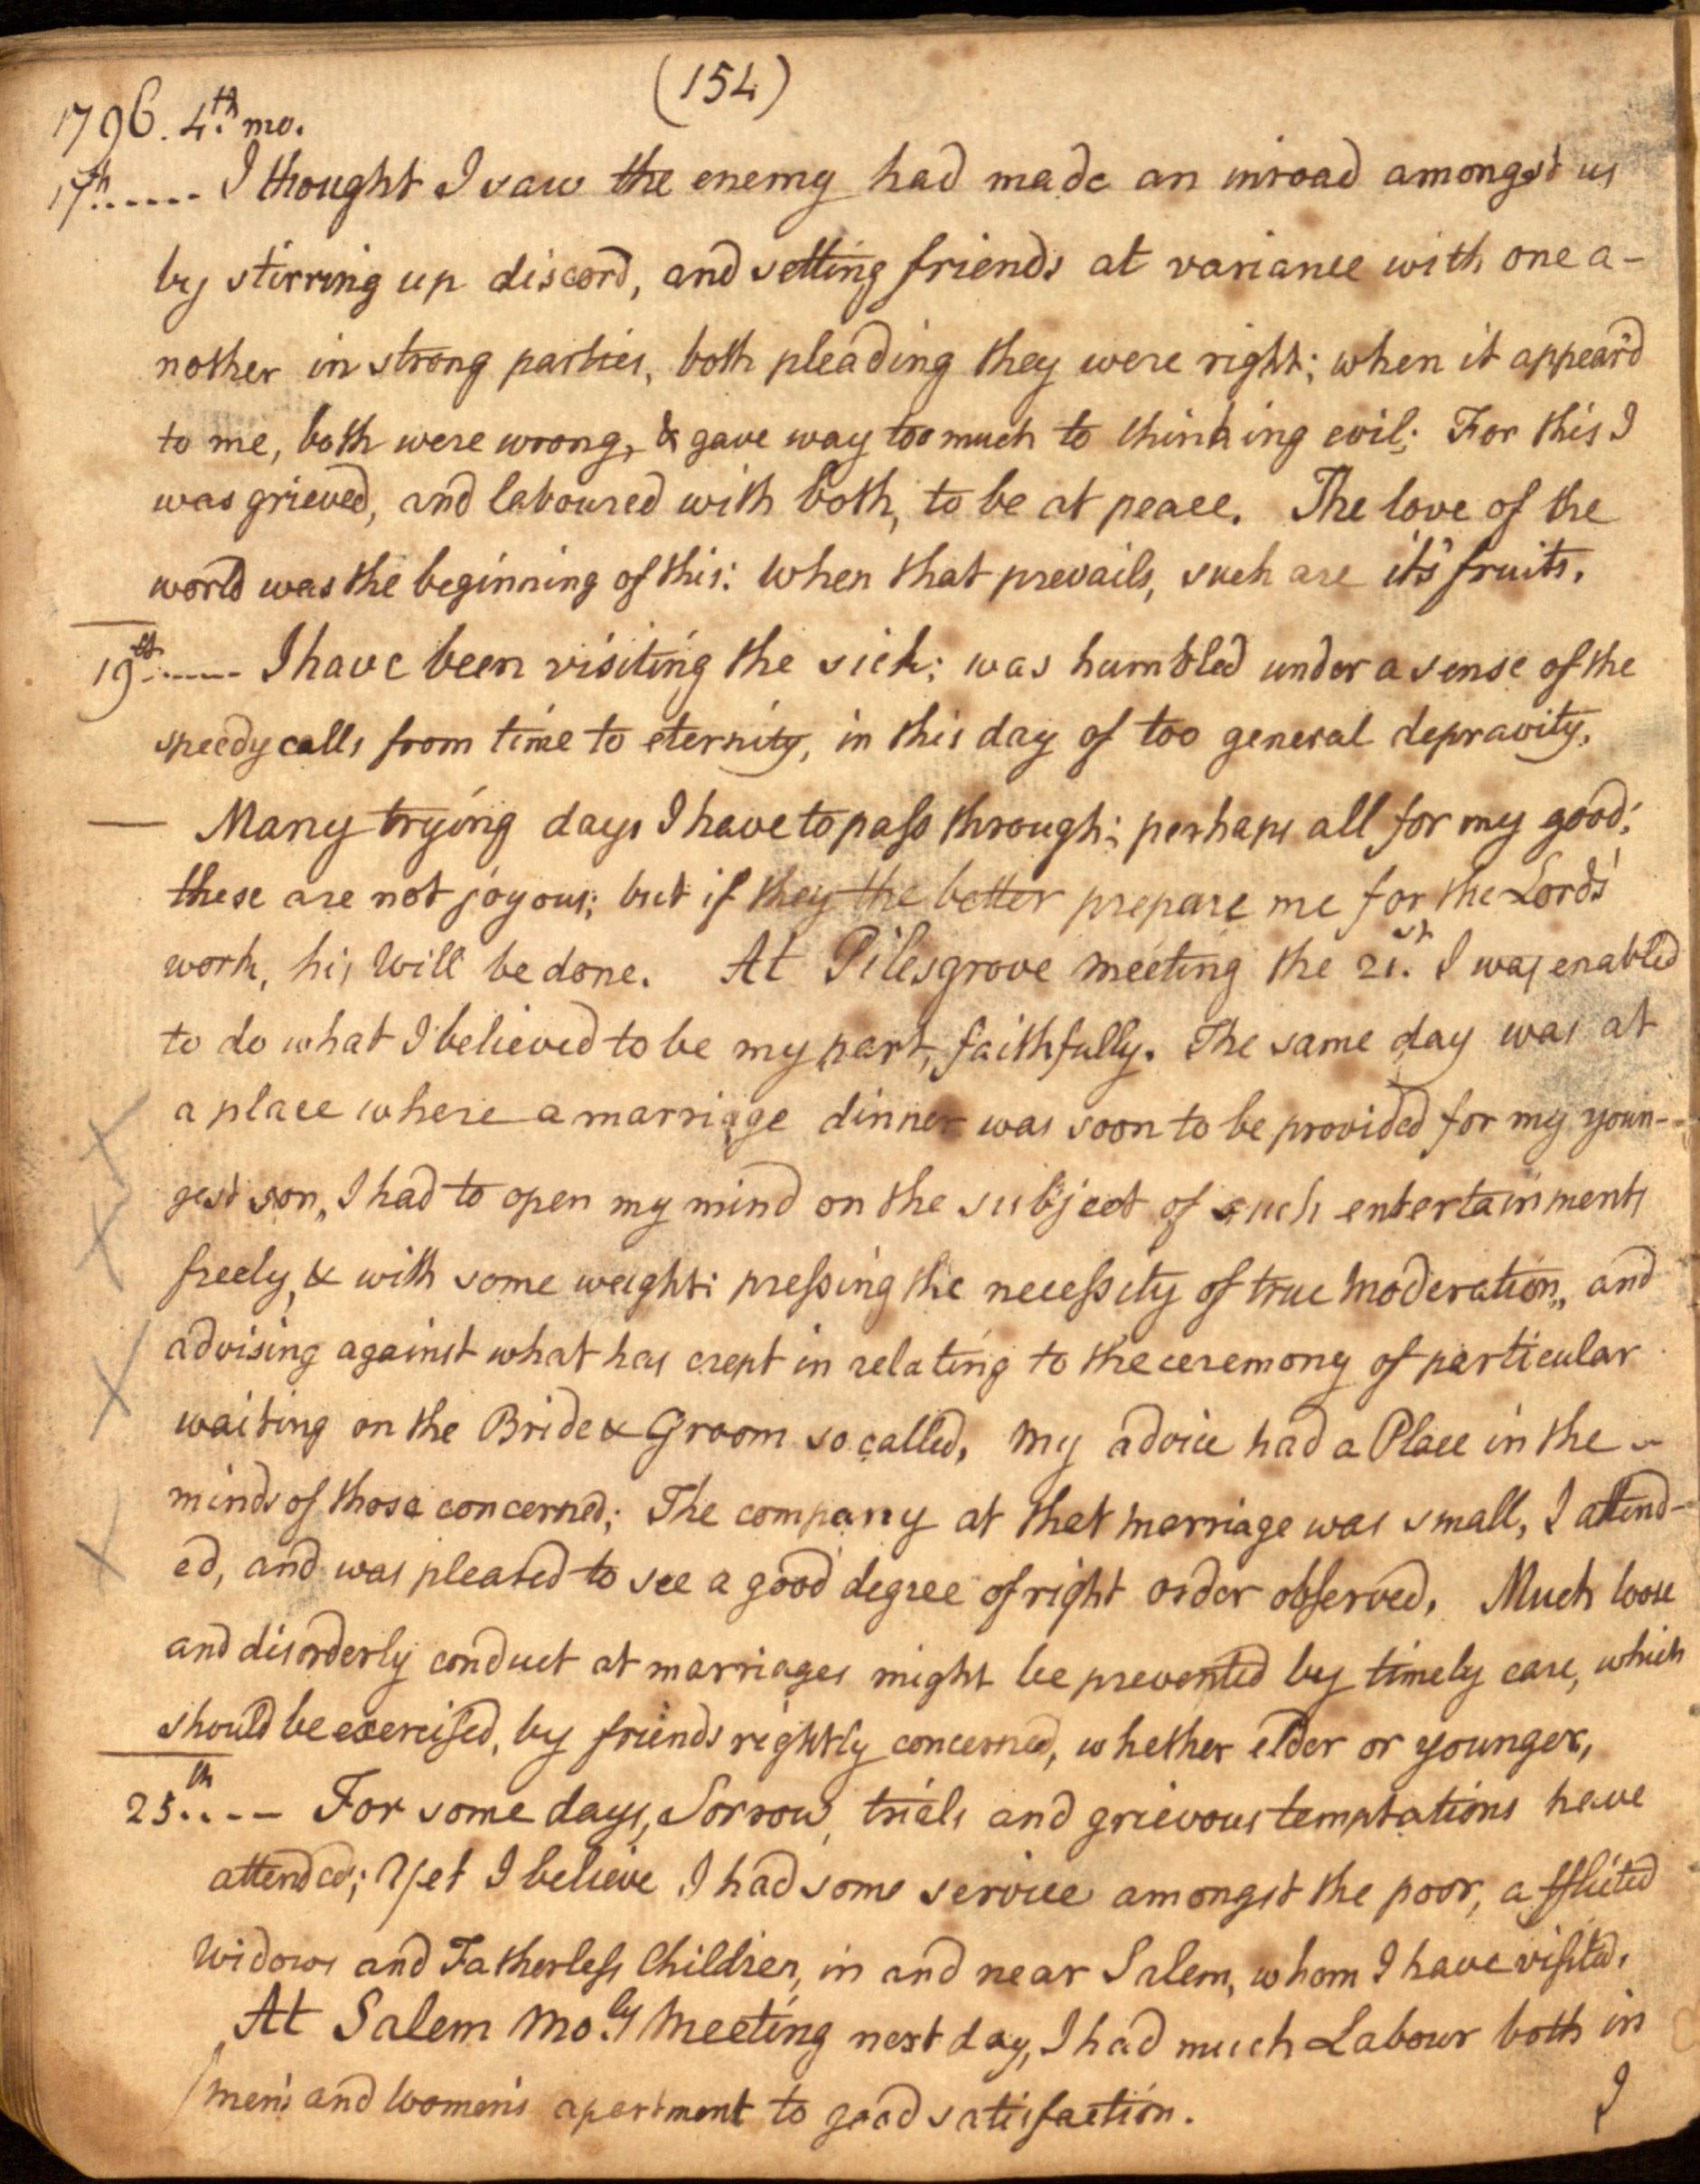 (154)
1796. 4th. mo.
17th...... I thought I saw the enemy had made an inroad amongst us
by stirring up discord, and setting friends at variance with one a-
nother in strong parties, both pleading they were right; when it appear'd
to me, both were wrong, & gave way too much to thinking evil; For this I
was grieved, and laboured with both, to be at peace. The love of the
world was the beginning of this: When that prevails, such are it's fruits.
19th...... I have been visiting the sick; was humbled under a sense of the
speedy calls from time to eternity, in this day of too general depravity.
— Many trying days I have to paſs through; perhaps all for my good;
these are not joyous; but if they the better prepare me for the Lord's
work, his Will be done. At Pilesgrove meeting the 21.st I was enabled
to do what I believed to be my part, faithfully. The same day was at
a place where a marriage dinner was soon to be provided for my youn-
gest son, I had to open my mind on the subject of such entertainments
freely, & with some weight: preſsing the neceſsity of true Moderation, and
advising against what has crept in relating to the ceremony of particular
waiting on the Bride & Groom so called, My advice had a Place in the
minds of those concerned; The company at that marriage was small, I attend-
ed, and was pleased to see a good degree of right order obſerved. Much loose
and disorderly conduct at marriages might be prevented by timely care, which
should be exerciſed, by friends rightly concerned, whether elder or younger,
25th..-- For some days, Sorrow, trials and grievous temptations have
attended; Yet I believe I had some service amongst the poor, afflicted
Widows and Fatherleſs Children, in and near Salem, whom I have viſited.
At Salem Mo.ly Meeting next day, I had much Labour both in
men's and Women's apartment to good satisfaction.
I